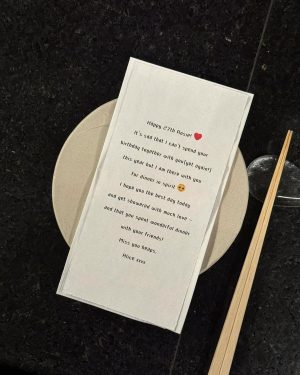 Happy 27th Rosie! ❤️
It's sad that i can't spend your
birthday together with you(yet again!)
this year but i am there with you
for dinner in spirit 😍
I hope you the best day today
and get showered with much love -
and that you spent wonderful dinner
with your friends!
Miss you heaps,
Alice xxxx